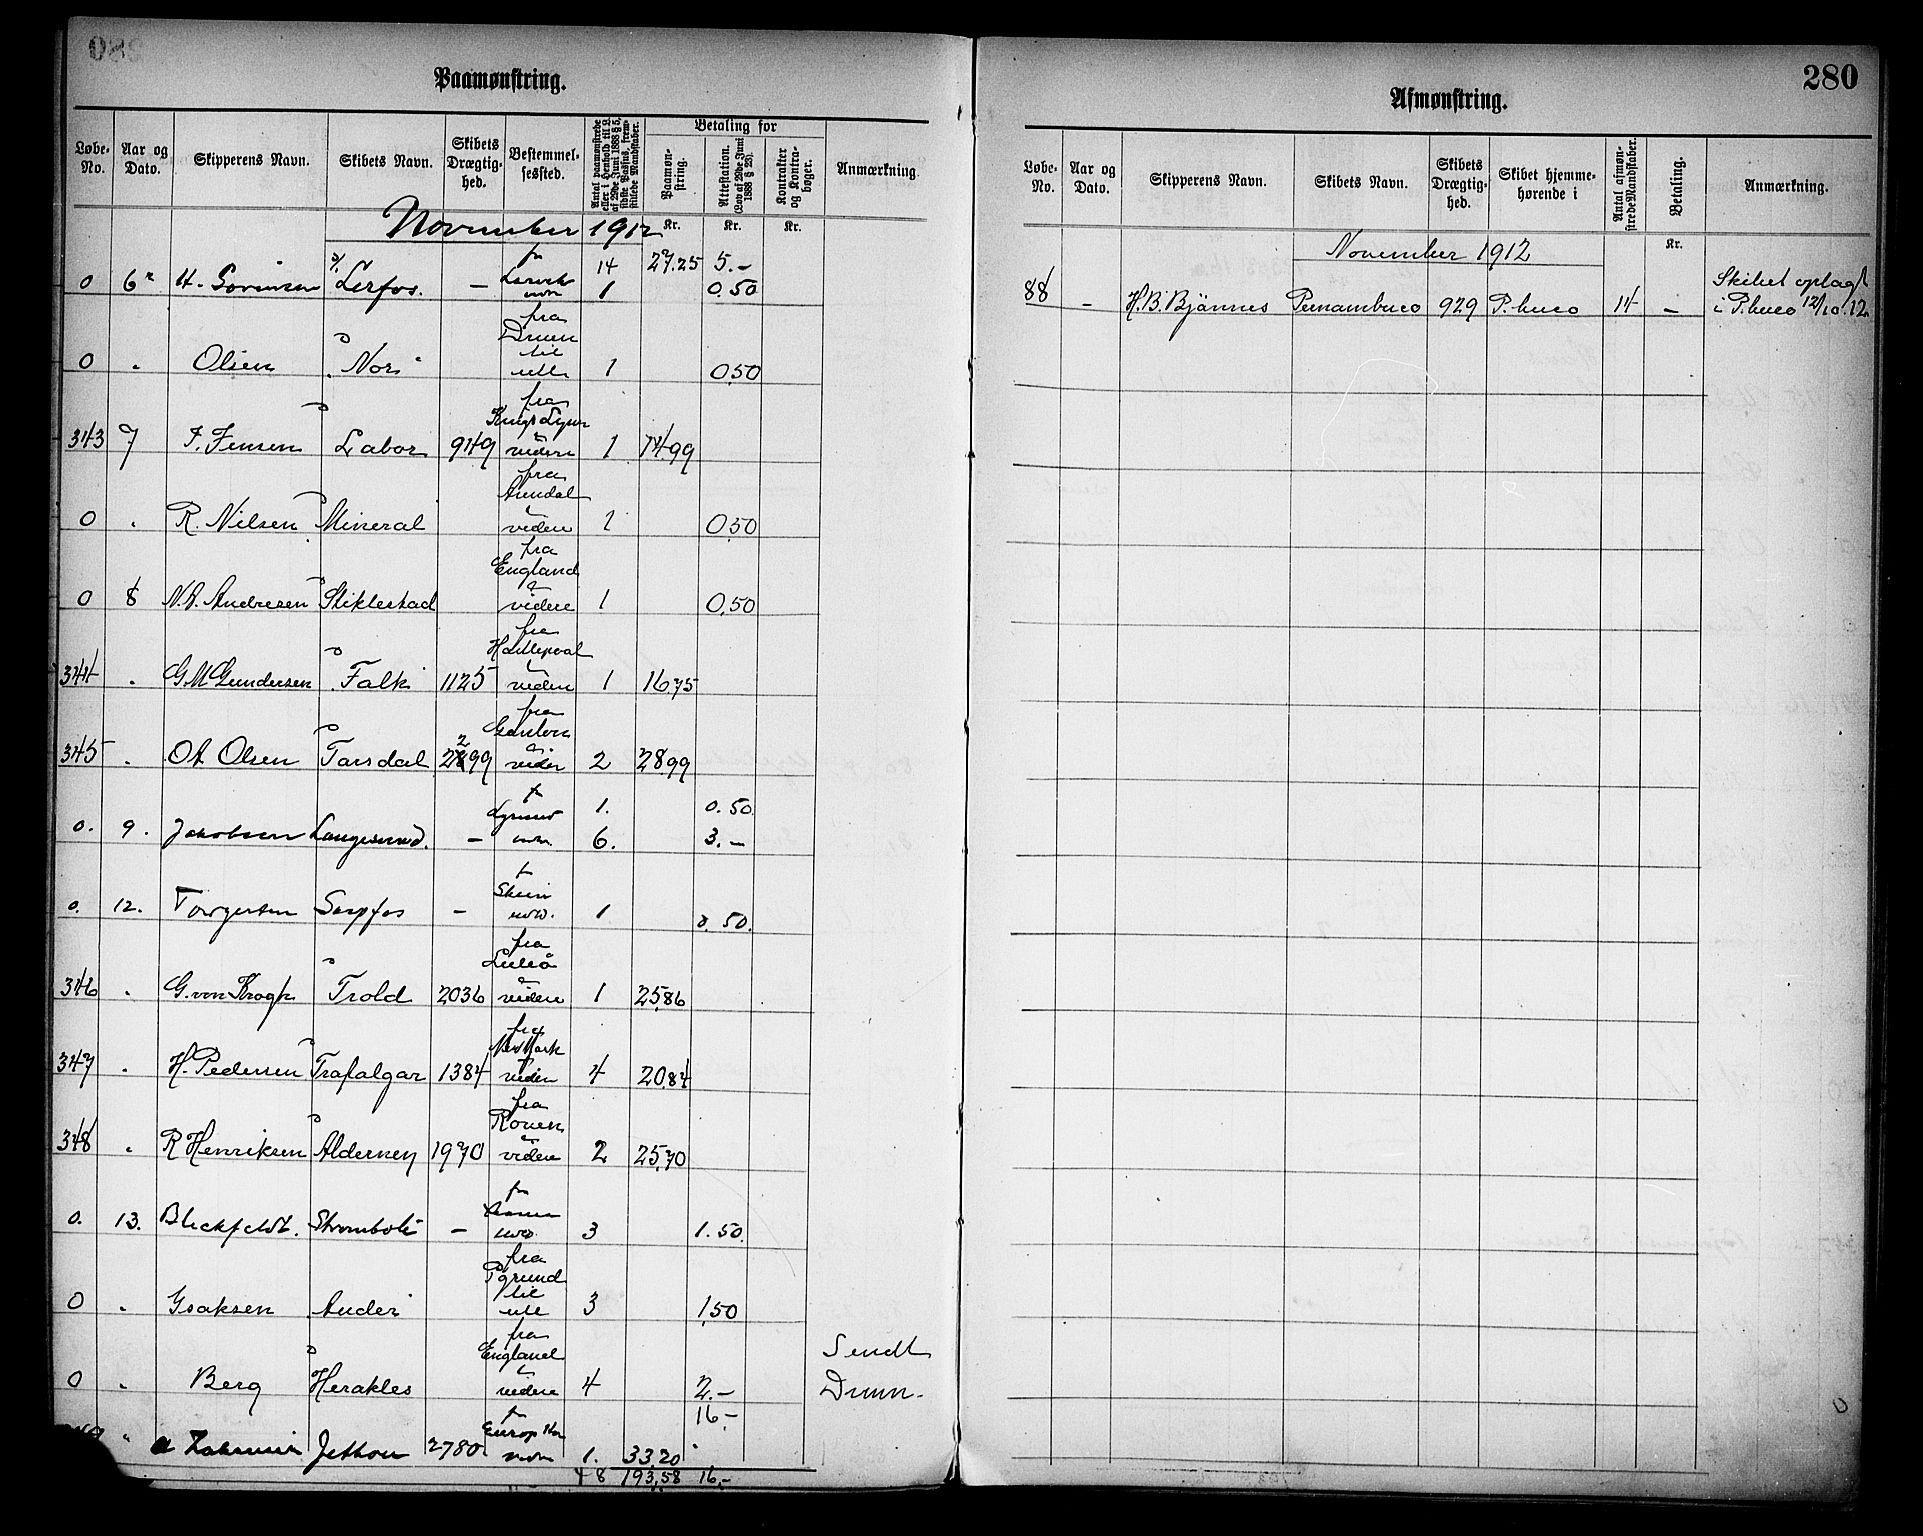 Paamønstring.
Løbe-No. Aar og Dato. Skipperens Navn. Skibets Navn. Skibets Drægtig-hed. Bestemmel-sessted. Antal paamønstrede eller i Henhold til L. af 29de Juni 1888 § 5, sidste Passus, frem-stillede Mandskaber. Betaling for Paamøn-string. Attestation. (Lov af 29de Juni 1888 § 25). Kontrakter og Kontra-bøger. Anmærkning.
November 1912 Kr. Kr. Kr.
14 27.25 5.-
0 6 H. Sørensen Lerfos. - Larvik 1 0.50
fra
Drmn
til
0 " Olsen "Nor" udl 1 0,50
fra
Kings Lynn
343 7 F. Jensen Labor 949 videre 1 14,99
fra
Arendal
0 " R. Nilsen Mineral videre 1 0,50
fra
England
0 8 N.A. Andresen Stiklestad videre 1 0,50
fra
Hartlepool
344 " G.M Gundersen Falk 1125 videre 1 16,75
fra
345 " O A Olsen Tarsdal 2299 videre 2 28,99
1. 0.50
0. 9. Jakobsen Langesund. - 6. 3.-
Skien
0. 12. Torgersen Sarpfos - 1 0.50.
fra
Luleå
346 " G. von Krogh Trold 2036 videre 1 25,86
fra
New York
347 " H. Pedersen Trafalgar 1384 videre 4 20,84
fra
Rouen
348 " R Henriksen Alderney 1970 videre 2 25,70
0. 13. Blickfeldt. Stromboli - 3 1.50.
fra
Pgrund
til
0 " Isaksen Audei udl 3 1,50
fra
England Sendt
0 " Berg Herakles videre 4 2.- Drmn.
16,-
" Jethou 2780 Europ 1. 33,20
48 193,58 16,-
280
Afmønstring.
Løbe-No. Aar og Dato. Skipperens Navn. Skibets Navn. Skibets Drægtig-hed. Skibet hjemme-hørende i Antal afmøn-strede Mandskaber. Betaling. Anmærkning.
Kr.
November 1912
Skibet oplagt
88 - H.B. Bjønnes Pernambuco 929 P.buco 14 - i P.buco 12/10.12